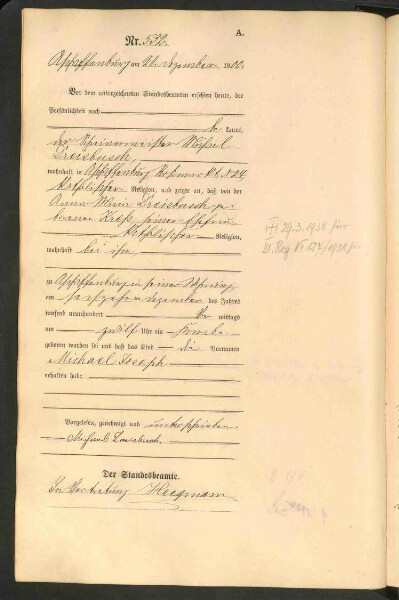 A.
Nr. 532.
Aschaffenburg am 21. Dezember 1900.
Vor dem unterzeichneten Standesbeamten erschien heute, der
Persönlichkeit nach
be kannt,
der Schreinermeister Michael
Dreisbusch,
wohnhaft in Aschaffenburg
katholischer Religion, und zeigte an, daß von der
Anna Maria Dreisbusch ge-
borenen Kreß, seiner Ehefrau
katholischer Religion,
wohnhaft bei ihm,
zu Aschaffenburg in seiner Wohnung
am sechzehnten Dezember des Jahres
tausend neunhundert Vor mittags
um zwölf Uhr ein Knabe
geboren worden sei und daß das Kind die Vornamen
Michael Joseph
erhalten habe
Vorgelesen, genehmigt und unterschrieben
Michael Dreisbusch
Der Standesbeamte.
In Vertretung Hegmann
29.3.1938 für